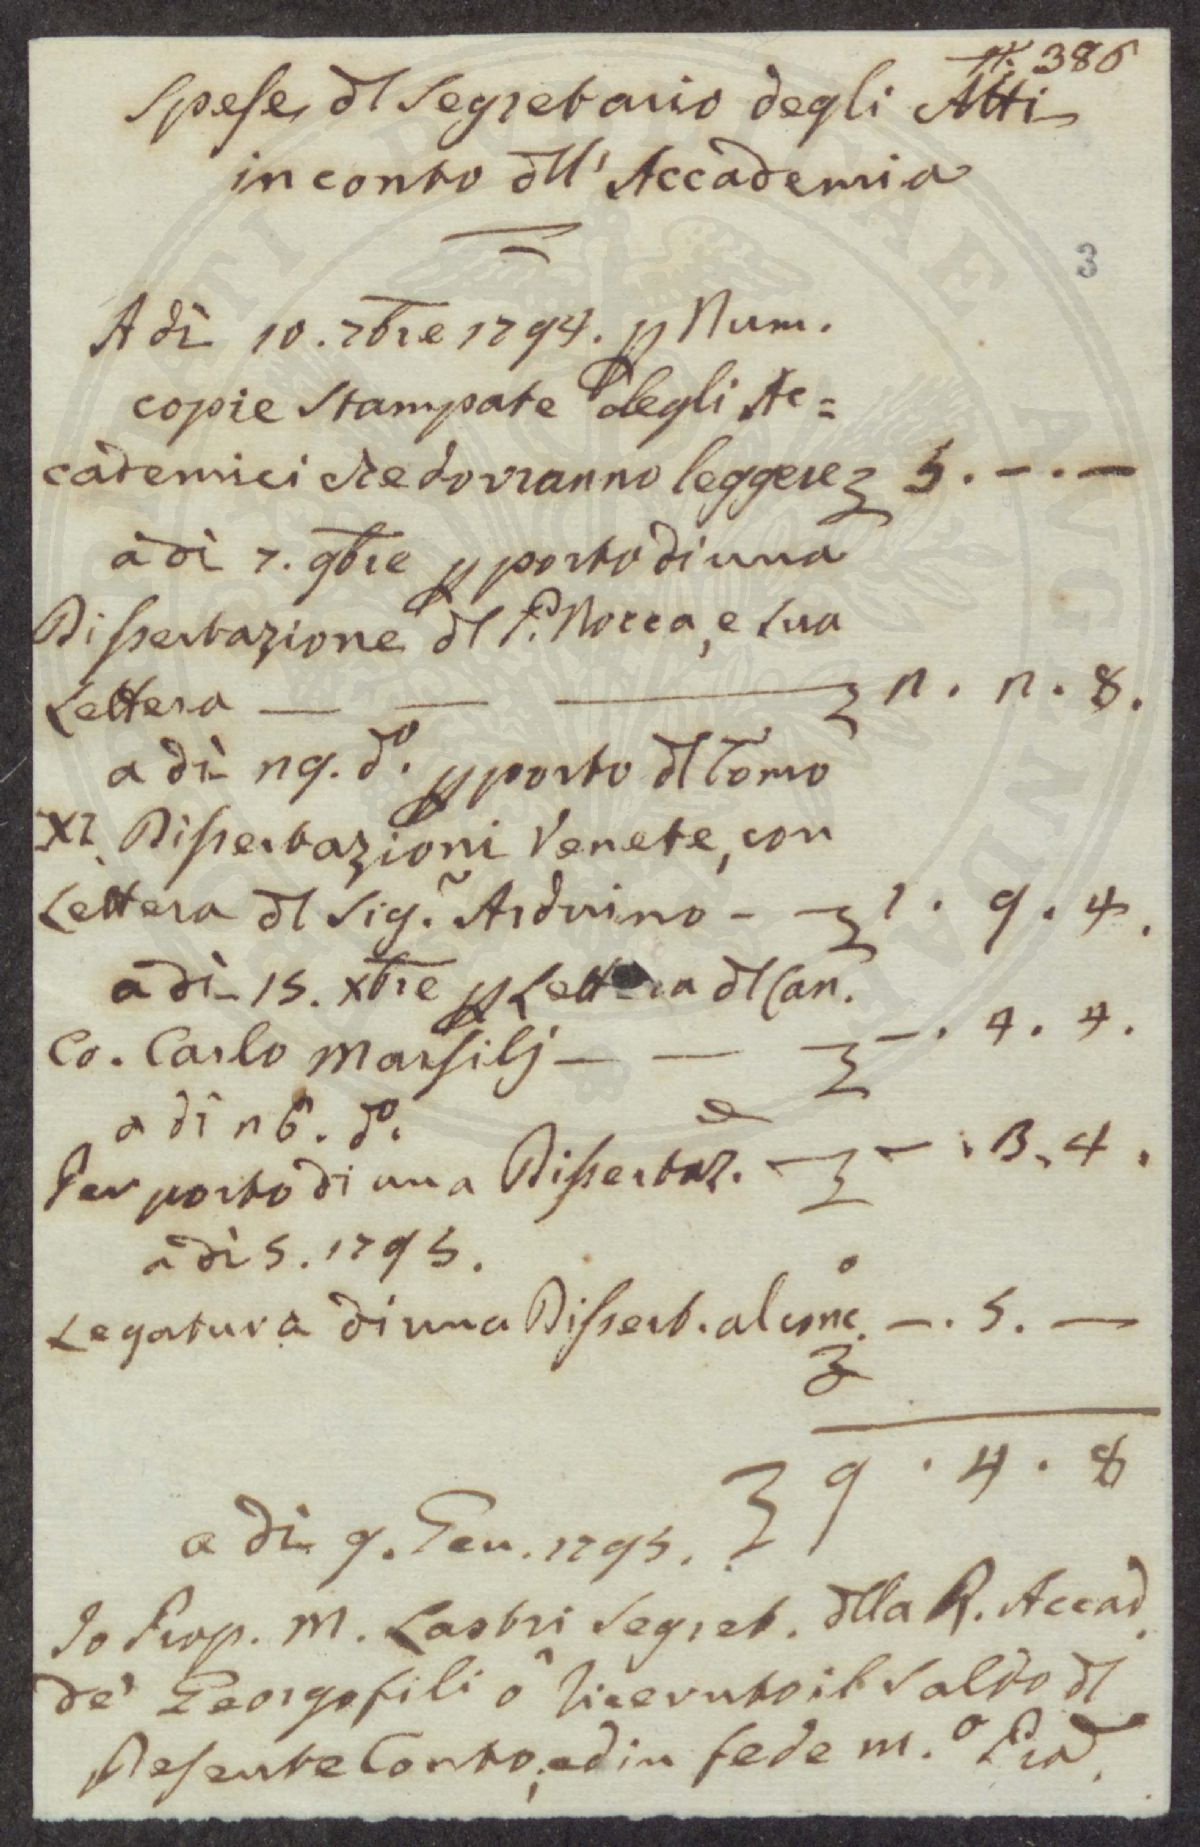 N. 386
Spese dl Segretario degli Atti
in conto dll' Accademia
3
A di 10. 7bre 1794. p Num.
copie stampate degli Ac=
cademici che dovranno leggere 5. -. -
a di 7. 9bre p porto di una
Dissertazione dl P. Nocca, e sua
Lettera — — — 2. 2. 8.
a di 29. do. p porto dl Tomo
XI. Dissertazioni Venete, con
Lettera dl Sig. Arduino - 1. 9. 4.
a di 15. Xbre p Lettera dl Can.
Co. Carlo Marsilj — — -. 4. 4.
a di 26. do.
Per porto di una Dissertaz. - -. 3. 4.
a di 5. 1795.
Legatura di una Dissert. al -. 5. —
9. 4. 8
a di 9. Gen. 1795.
Io Prop. M. Lastri Segret. dlla R. Accad.
de' Georgofili ò ricevuto il Saldo dl
Presente Conto, ed in fede m.o Pia